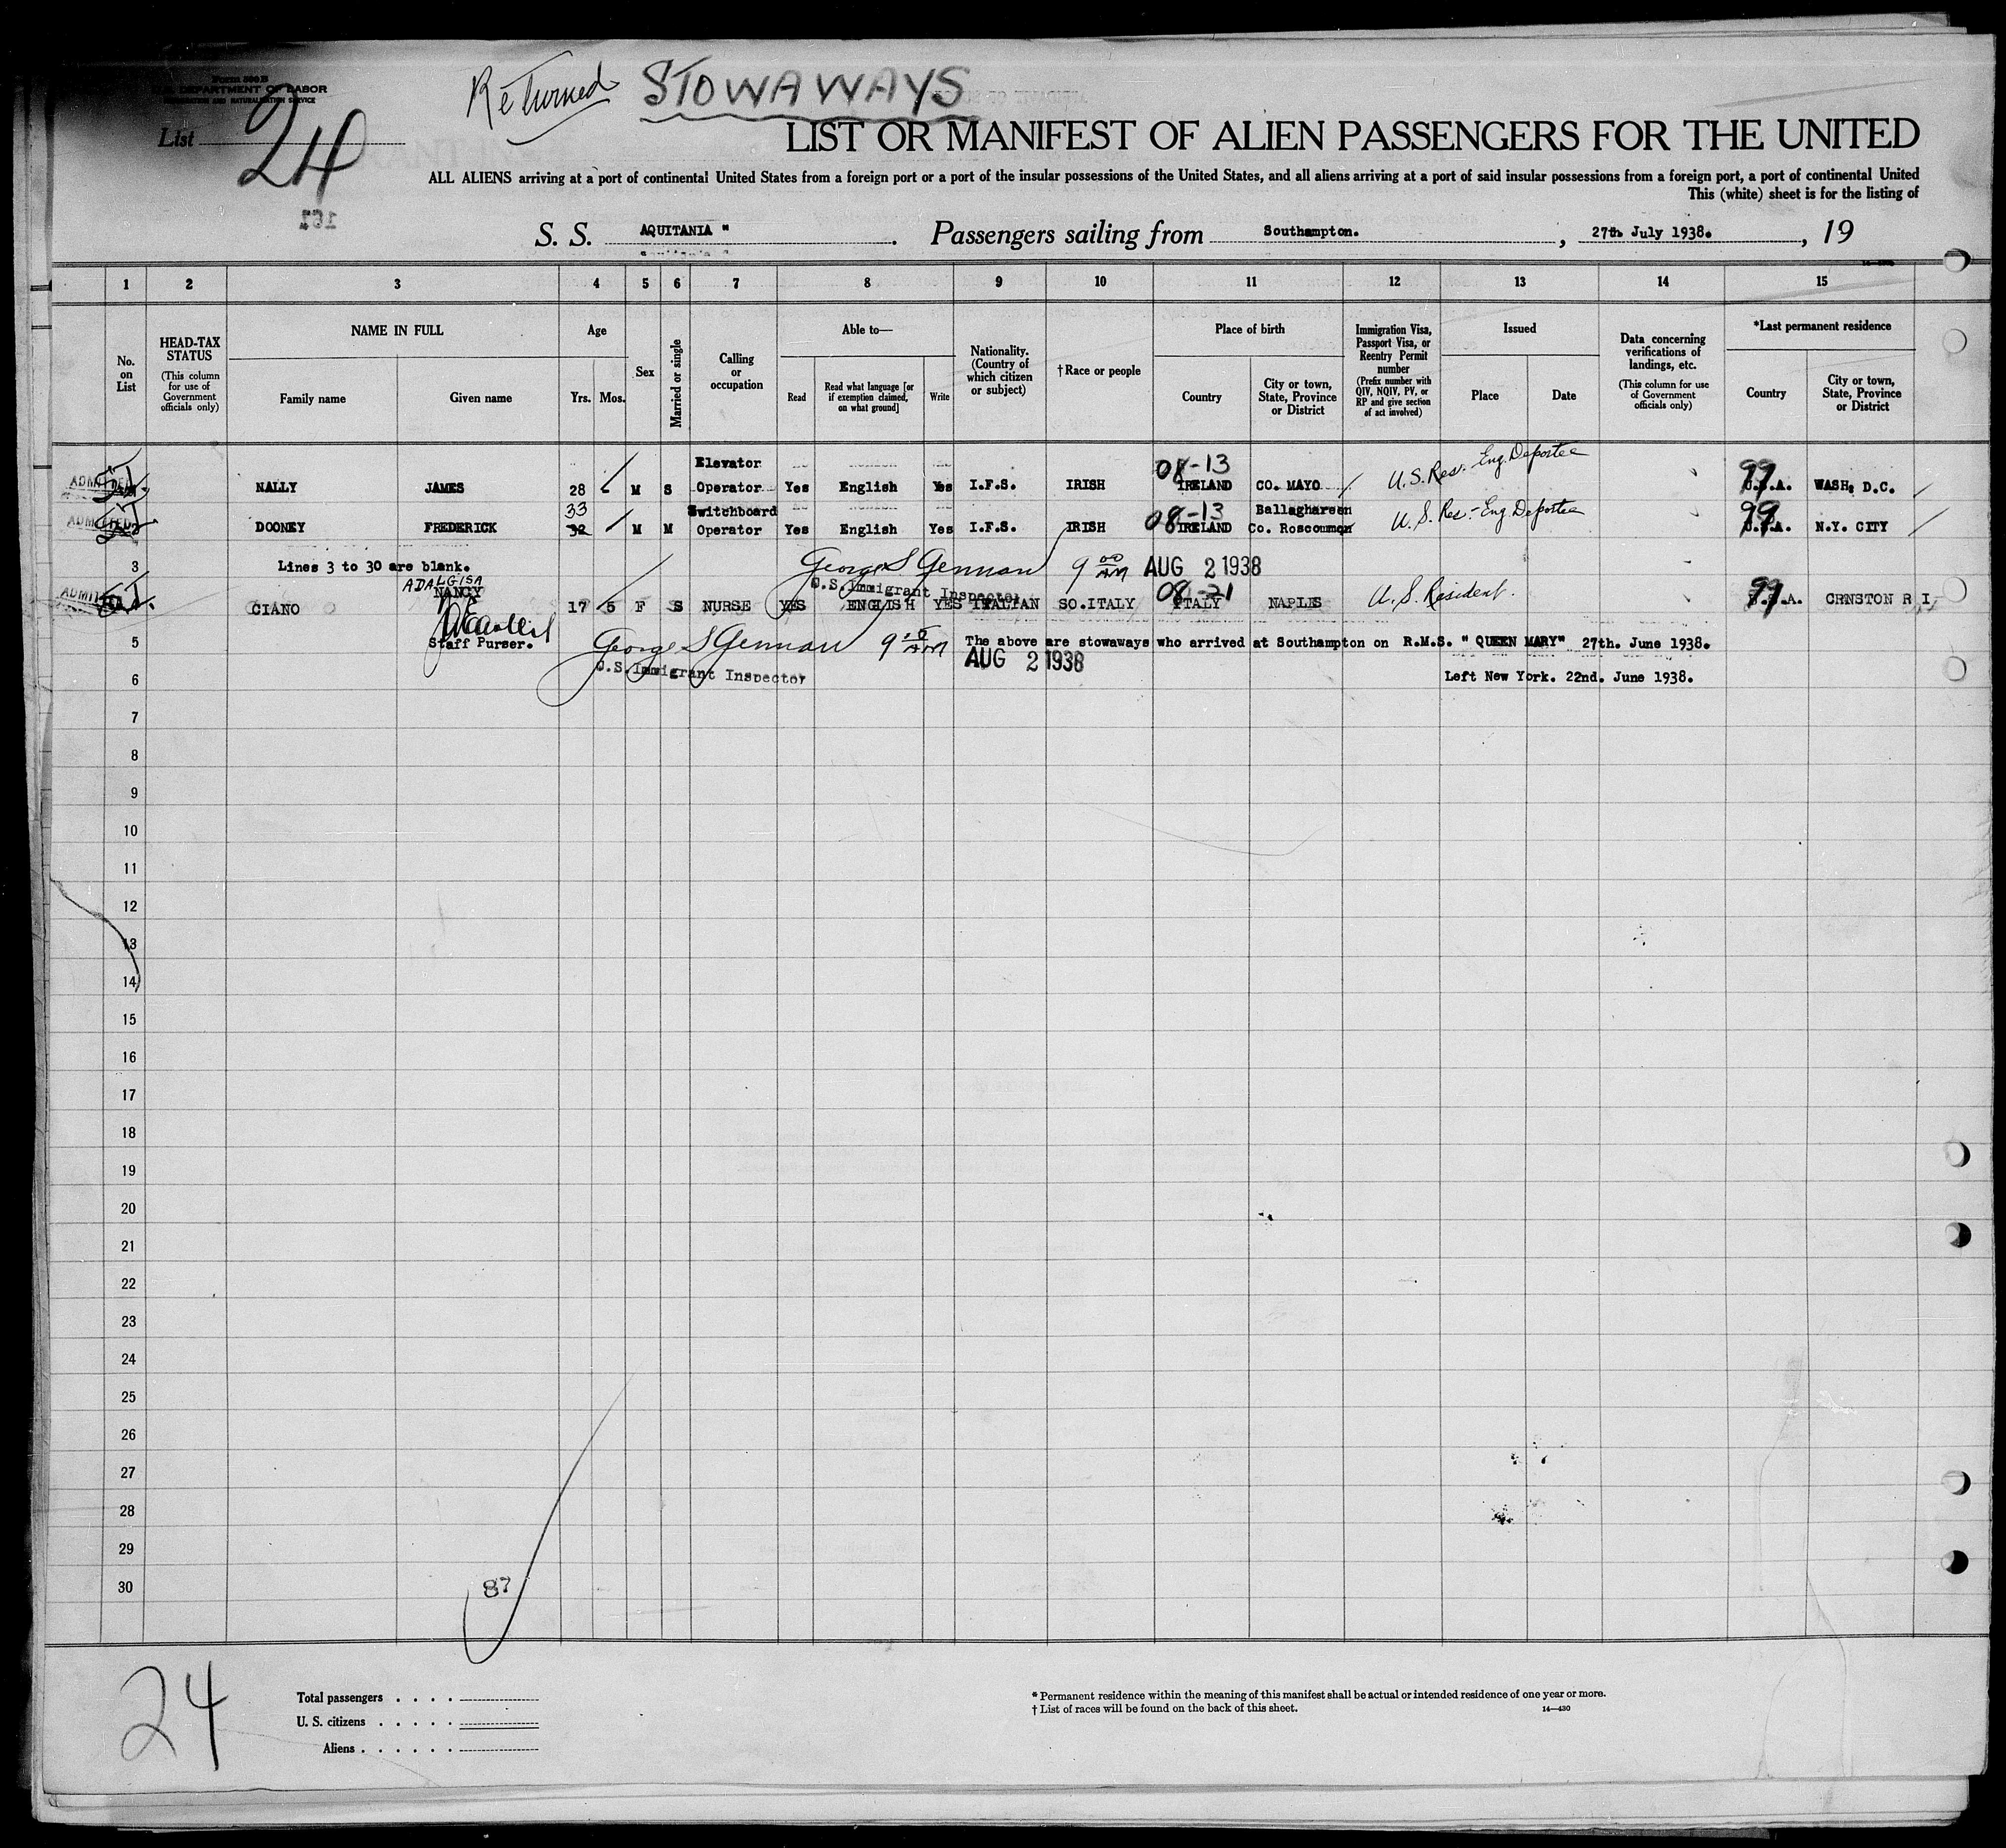 Form 500 B
U. S. DEPARTMENT OF LABOR
IMMIGRATION AND NATURALIZATION SERVICE
Returned STOWAWAYS
List 24
LIST OR MANIFEST OF ALIEN PASSENGERS FOR THE UNITED
ALL ALIENS arriving at a port of continental United States from a foreign port or a port of the insular possessions of the United States, and all aliens arriving at a port of said insular possessions from a foreign port, a port of continental United
This (white) sheet is for the listing of
S. S. AQUITANIA " . Passengers sailing from Southampton. , 27th July 1938. , 19
1 2 3 4 5 6 7 8 9 10 11 12 13 14 15
No. on List
HEAD-TAX STATUS
(This column for use of Government officials only)
NAME IN FULL
Family name
Given name
Age
Yrs.
Mos.
Sex
Married or single
Calling or occupation
Able to—
Read
Read what language [or if exemption claimed, on what ground]
Write
Nationality. (Country of which citizen or subject)
†Race or people
Place of birth
Country
City or town, State, Province or District
Immigration Visa, Passport Visa, or Reentry Permit number
(Prefix number with QIV, NQIV, PV, or RP and give section of act involved)
Issued
Place
Date
Data concerning verifications of landings, etc.
(This column for use of Government officials only)
*Last permanent residence
Country
City or town, State, Province or District
ADMITTED NALLY JAMES 28 - M S Elevator Operator Yes English Yes I.F.S. IRISH 08-13 IRELAND CO. MAYO U.S. Res. - Eng. Deportee 99 U.S.A. WASH. D.C.
ADMITTED DOONEY FREDERICK 32 33 M M Switchboard Operator Yes English Yes I.F.S. IRISH 08-13 IRELAND Ballaghareen Co. Roscommon U.S. Res. - Eng. Deportee 99 U.S.A. N.Y. CITY
3 Lines 3 to 30 are blank. George S Gennan 9 00 AM AUG 2 1938
U.S. Immigrant Inspector
ADMITTED CIANO ADALGISA NANCY 17 5 F S NURSE YES ENGLISH YES ITALIAN SO.ITALY 08-21 ITALY NAPLES U.S. Resident. 99 U.S.A. CRNSTON R I
5 Staff Purser. George S Gennan 9 AM The above are stowaways who arrived at Southampton on R.M.S. " QUEEN MARY" 27th. June 1938.
AUG 2 1938
6 U.S. Immigrant Inspector Left New York. 22nd. June 1938.
7
8
9
10
11
12
13
14
15
16
17
18
19
20
21
22
23
24
25
26
27
28
29
30
87
24
Total passengers . . . .
U. S. citizens . . . . .
Aliens . . . . . .
* Permanent residence within the meaning of this manifest shall be actual or intended residence of one year or more.
† List of races will be found on the back of this sheet. 14—430